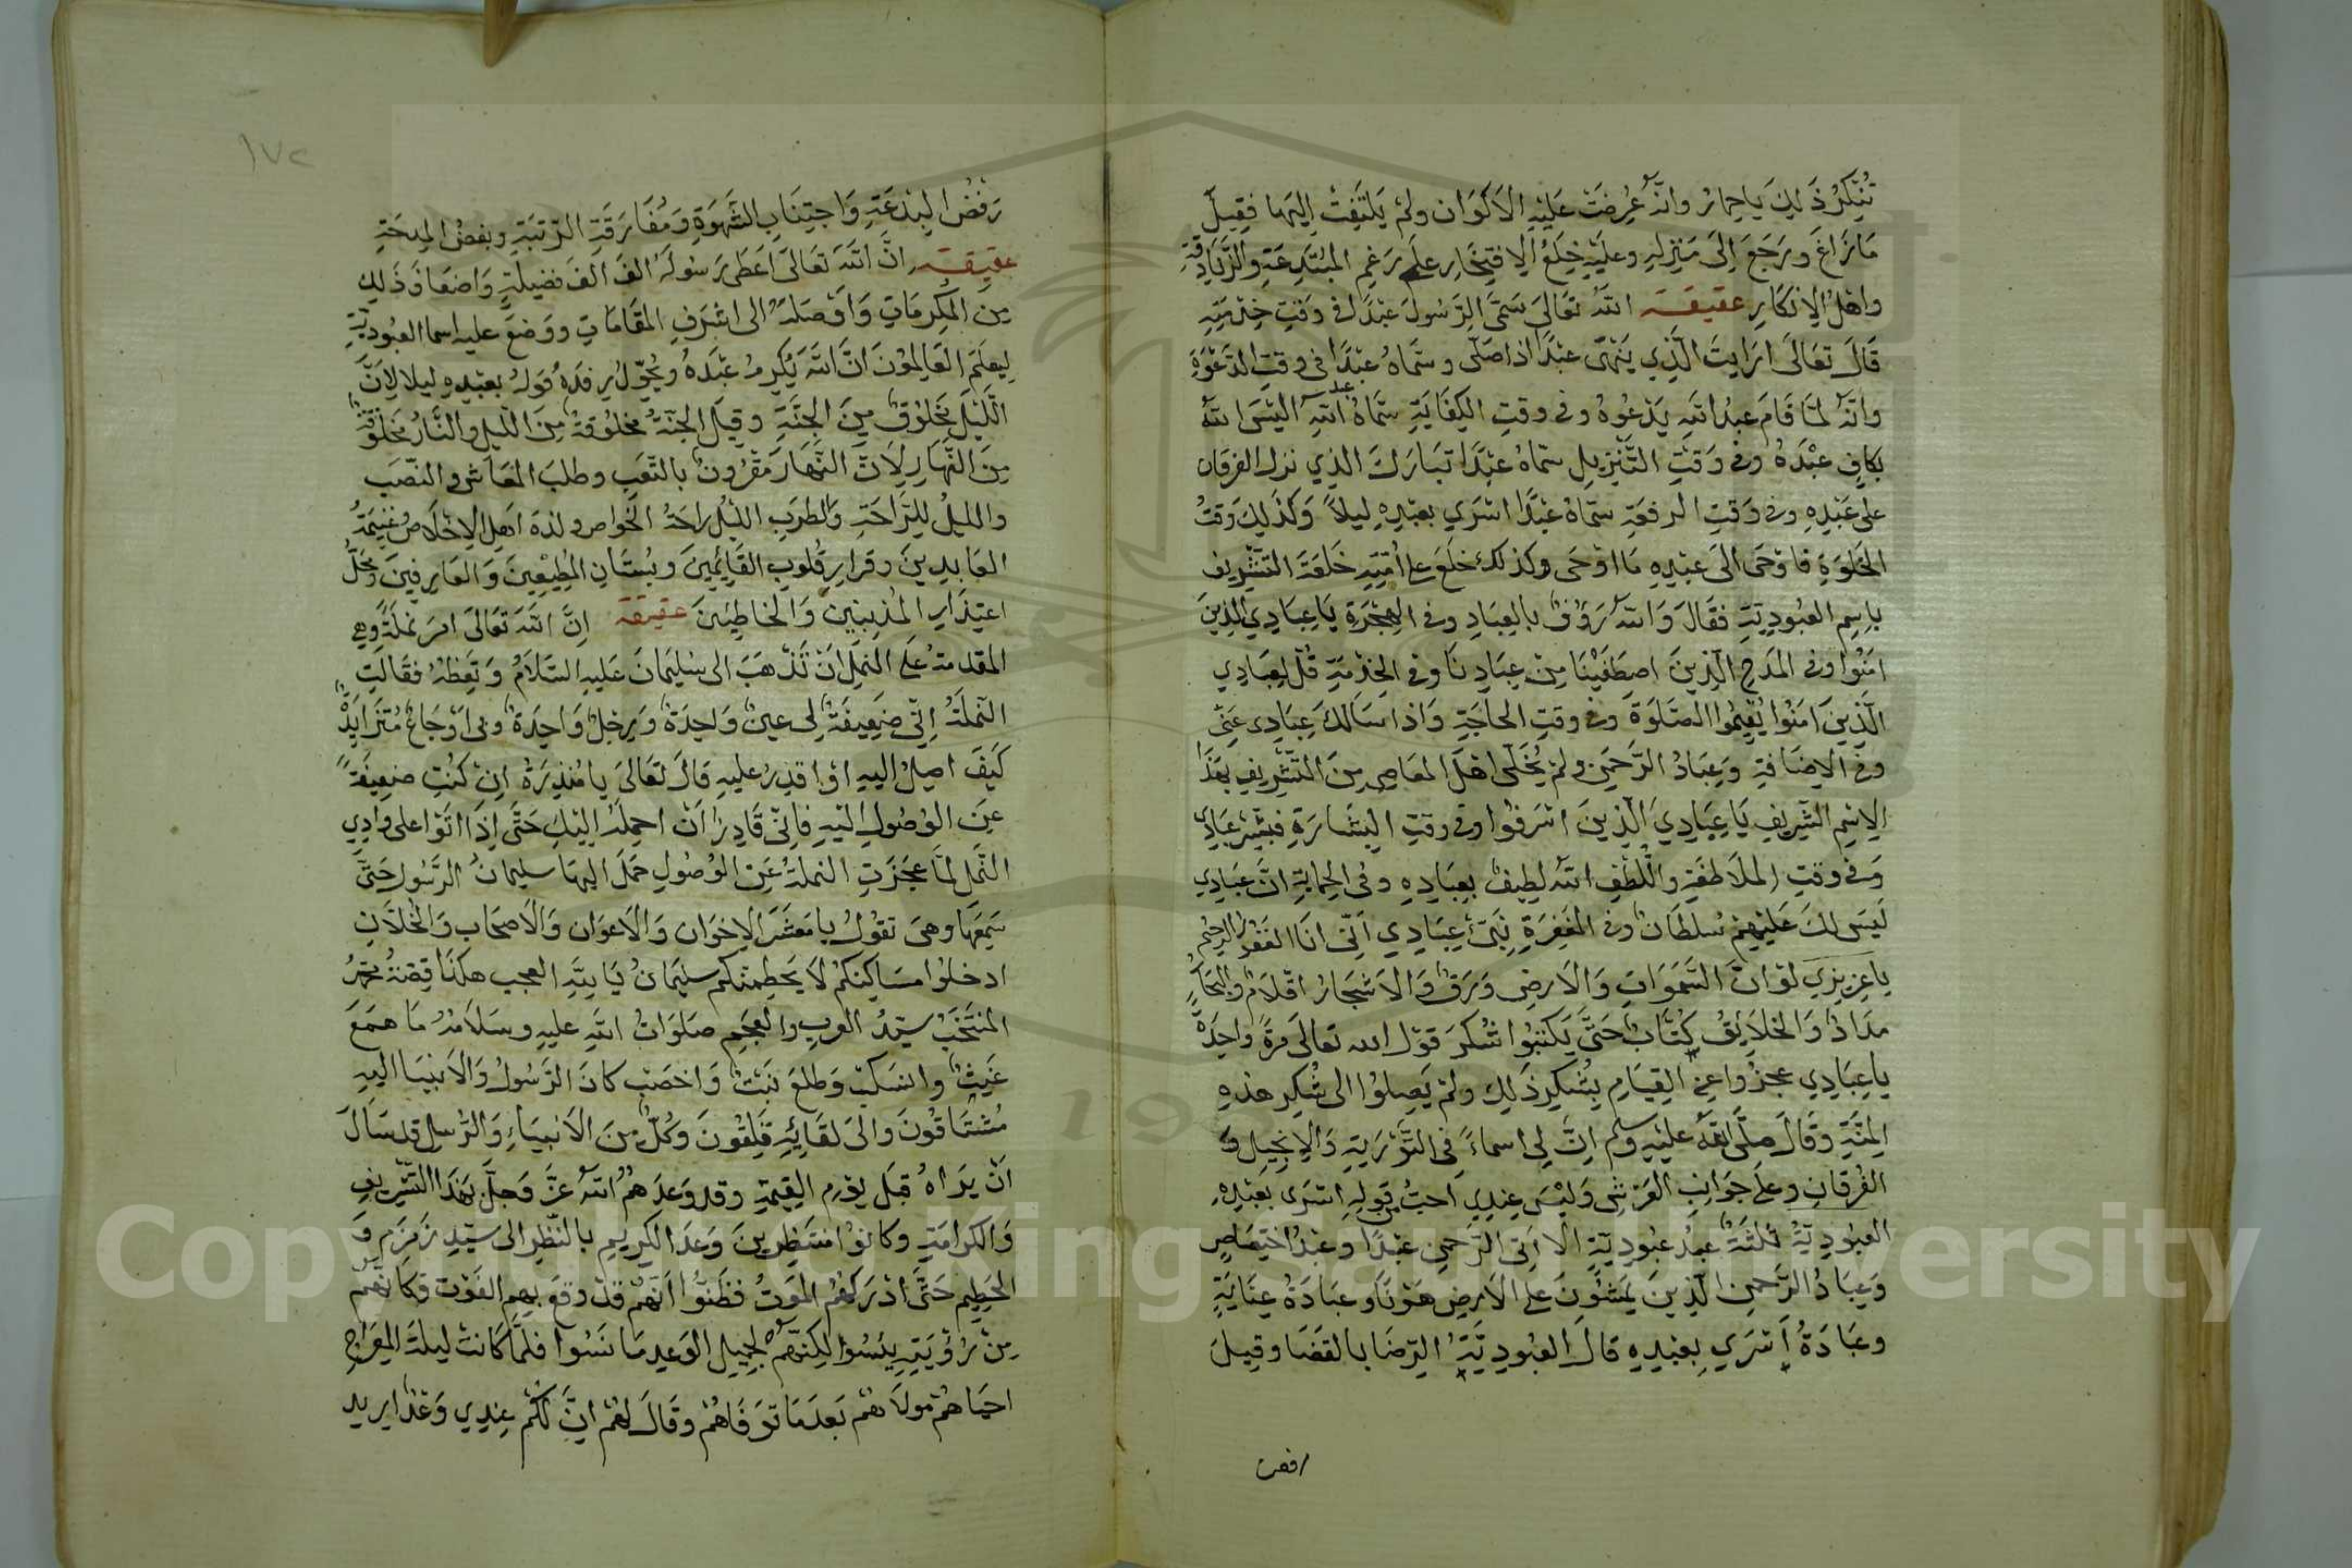 تُنكِرُ ذَلِكَ يَا حِمَارُ وانّه عُرِضَتْ عَلَيْهِ الاَكْوَان ولم يَلتَفِتْ اِليهَا فقِيلَ
مَازَاغَ ورَجَعَ اِلَى مَنزِلِهِ وعليْهِ خِلَعُ الِافتِخَارِ علَى رَغمِ المبْتَدِعَةِ والزَّنَادِقَةِ
واهْلِ الاِنكَارِ عقيقة اللهُ تعَالَى سَمَّى الرَّسُولَ عَبْدًا في وَقتِ خِدْمَتِهِ
قَالَ تعَالَى ارَايتَ الَّذِي يَنْهَى عبْدًا اذا صَلَّى وسَمَّاهُ عبْدًا في وقتِ الدَعْوَةِ
وانّه لمَّا قَامَ عبدُ اللهِ يَدْعُوهُ وفى وقتِ الكِفَايَةِ سَمَّاهُ عبد اللهِ اليْسَ اللهُ
بكافٍ عبْدَهُ وفى وَقتِ التَّنزِيلِ سمّاهُ عبْدًا تبَارَكَ الذِي نزل الفرقان
على عَبْدِهِ وفى وَقتِ الرفعَةِ سمّاهُ عبْدًا اسْرَي بعَبْدِهِ ليلاً وَكَذَلِكَ وَقتُ
الخَلوَةِ فاوْحَى الَى عبْدِهِ مَا اوْحَى وكذلكَ خلَعَ على اُمّتِهِ خَلعَةَ التّشْرِيف
باِسمِ العبُودِيّةِ فقَالَ وَاللهُ رَؤفٌ بالعِبَادِ وفى الهجْرَةِ يَا عِبَادِي الذِينَ
امَنُوا وفى المَدحِ الّذِينَ اصطَفَيْنَا مِنْ عِبَادِنَا وفى الخِدْمَةِ قُلْ لِعِبَادِي
الّذِينَ امَنُوا يُقِيمُوا الصَّلَوةَ وفى وقتِ الحاجَةِ وَاذا سَالَكَ عِبَادِى عَنّى
وفى الاِضَافةِ وَعِبَادُ الرَّحمَنِ ولم يُخَلّى اهْلَ المعَاصِي مِنَ التّشرِيفِ بهَذا
الاِسْمِ الشّرِيفِ يَا عِبَادِيَ الّذِينَ اسْرَفُوا وفى وقتِ البشَارَةِ فبَشّرْ عبَادِى
وَفى وقتِ الملاَطفَةِ واللُّطفِ اللهُ لطِيفٌ بعِبَادِهِ وفى الحِمايَةِ انَّ عبَادِي
لَيسَ لكَ عَليْهِمْ سُلطَانٌ وفى المغفِرَةِ نَبّئ عِبَادِي اَنّى انَا الغَفُورُ الرحِيمُ
يا عزيزِي لوْ انَّ السَّمَوَاتِ وَالاَرضِ وَرَقٌ وَالاَشْجَارُ اقلاَمٌ والبِحَارُ
مدَادٌ وَالخلاَئِقُ كُتّابٌ حَتَّى يَكتبُوا شُكرَ قوْل الله تعالَى مرَّةً واحِدَةً
يا عِبَادِي عجزُوا عنِ القِيَامِ بشُكرِ ذَلِكَ ولمْ يَصِلوُا الى شُكرِ هذهِ
المِنَّةِ وقَالَ صلَّى اللهُ عليْهِ وسلم انّ لِى اسماءً في التَّوْرَيةِ وَالاِنجِيلِ وَ
الفُرقانِ وعلَى جَوَانِبِ العَرْشِ وَليْسَ عِندِي احبُّ من قولِهِ اسْرَى بعَبْدِهِ
العبُودِيّةُ ثلثَةٌ عبدُ عبُودِيّةٍ الاّ اَتِى الرَّحمنِ عبْدًا وعبْدُ اختِصَاصٍ
وَعِبَادُ الرَّحمنِ الّذِينَ يَمشُونَ على الاَرضِ هَوْنًا وعبَادَةُ عِنَايَةٍ
وعبَادَةُ اَسْرَي بِعبْدِهِ قالَ العبُودِيَّةُ الرّضَا بالقضَا وقيلَ
رفض
١٧٢
رَفْضُ البِدْعَةِ وَاجتِنَابِ الشَّهوَةِ وَمُفَارَقَةِ الرّتبَةِ وبغضُ المِدحَةِ
عقيقة انَّ اللهَ تعَالَى اعطَى رَسُولَهُ الفَ الفَ فضِيلةٍ وَاضعَافَ ذَلِكَ
مِن المَكرُمَاتِ وَاوْصَلهُ الى اشرَفِ المقَامَاتِ ووَضعَ عليه اسم العبُودِيّةِ
لِيعلَمَ العَالِمُونَ انَّ اللهَ يُكرِمُ عبْدَهُ ويُجزِلُ رِفدَهُ قولهُ بعبْدِهِ ليلا لاِنَّ
اللّيْلَ مخَلوُقٌ مِنَ الجنَّةِ وقيلَ الجنّةُ مخلوُقةٌ مِنَ اللّيلِ والنَّارُ مخَلوُقةٌ
مِنَ النَّهَارِ لاَنَّ النّهَارَ مَقرُونٌ بالتّعَبِ وطلبِ المعَاشِ والنّصَبِ
والليلُ للرَّاحَةِ والطّرَبِ الليْلُ راحَةُ الخَواص ولذةُ اهلِ الاِخلاَصِ غنِيمَةُ
العَابدِينَ وقرَارِ قلُوبِ القَائِمِينَ وبُستَانِ المُطِيعِينَ وَالعَارِفِينَ ومَحَلُّ
اعتِذَارِ المُذنِبِينَ وَالخاطِئِينَ عقيقة اِنَّ اللهَ تعَالَى امرَ نملَةً وهِيَ
المقدمَةُ علَى النملِ انْ تَذْهبَ الى سُليمَانَ عَليهِ السّلاَمُ وَتعِظهُ فقَالَتِ
النّملَةُ اِنّى ضَعِيفَةٌ لِى عينٌ وَاحِدَةٌ وَرِجلٌ وَاحِدَةٌ وبِى اَوْجَاعٌ مُتزَايِدَةٌ
كيفَ اصِلُ اليهِ اوْ اقدِرُ عليهِ قالَ تعَالَى يا مُنذِرَةُ اِنْ كُنتِ ضعِيفَةً
عنِ الوُصُولِ اليْهِ فاِنّى قَادِرٌ انْ احمِلَهُ اليْكِ حَتَّى اِذَا اتَوْا على وادِي
النَّمْلِ لمّا عجَزَتِ النملةُ عَنِ الوُصُولِ حمَلَ اليهَا سليمَانُ الرَّسُولِ حَتَّى
سَمِعَهَا وهىَ تقوُلُ يا مَعشَرَ الاِخوَان وَالاَعوَان وَالاَصحَاب وَالخُلاَّنِ
ادخلوُا مسَاكِنكُمْ لاَ يَحطِمنّكم سليمَانُ يَا بِنْيَةَ العجب هكذا قِصّةُ محمّدٍ
المنتَخَبِ سيّدِ العربِ والعَجَمِ صَلوَاتُ اللهِ عليهِ وسَلاَمُهُ مَا همَعَ
غَيثٌ وانسَكبَ وَطلعَ نَبْتٌ وَاخصَبَ كانَ الرَّسُولُ وَالاَنبيَا اليهِ
مُشتَاقُونَ والىَ لقَائِهِ قَلِقُونَ وكُلٌّ مِنَ الاَنبيَاءِ وَالرُّسلِ قد سَالَ
انْ يرَاهُ قبَلَ يوْمِ القِيمَةِ وقد وَعدَهُمُ اللهُ عزَّ وَجلَّ بهَذا التّشرِيفِ
وَالكرَامَةِ وكانوُا منتَظِرِينَ وَعدَ الكرِيمِ بالنّظرِ الى سيّدِ زَمزَم وَ
الحَطِيمِ حَتَّى ادْرَكهُمُ المَوتُ فظنُّوا انّهُمْ قدْ وقعَ بِهِم الفَوْت وَكانّهُمْ
مِنْ رُؤيَتِهِ يئسُوا لكِنّهُمْ لجَمِيلِ الوَعدِ مَا نَسُوا فلمّا كانتْ ليلَةُ المِعرَاجِ
احيَاهُمْ مولاَهُمْ بَعدَ مَا توَفَاهُمْ وقَالَ لهُمْ انَّ لَكُمْ عِندِي وَعْدًا اريد
Copyright © King Saud University